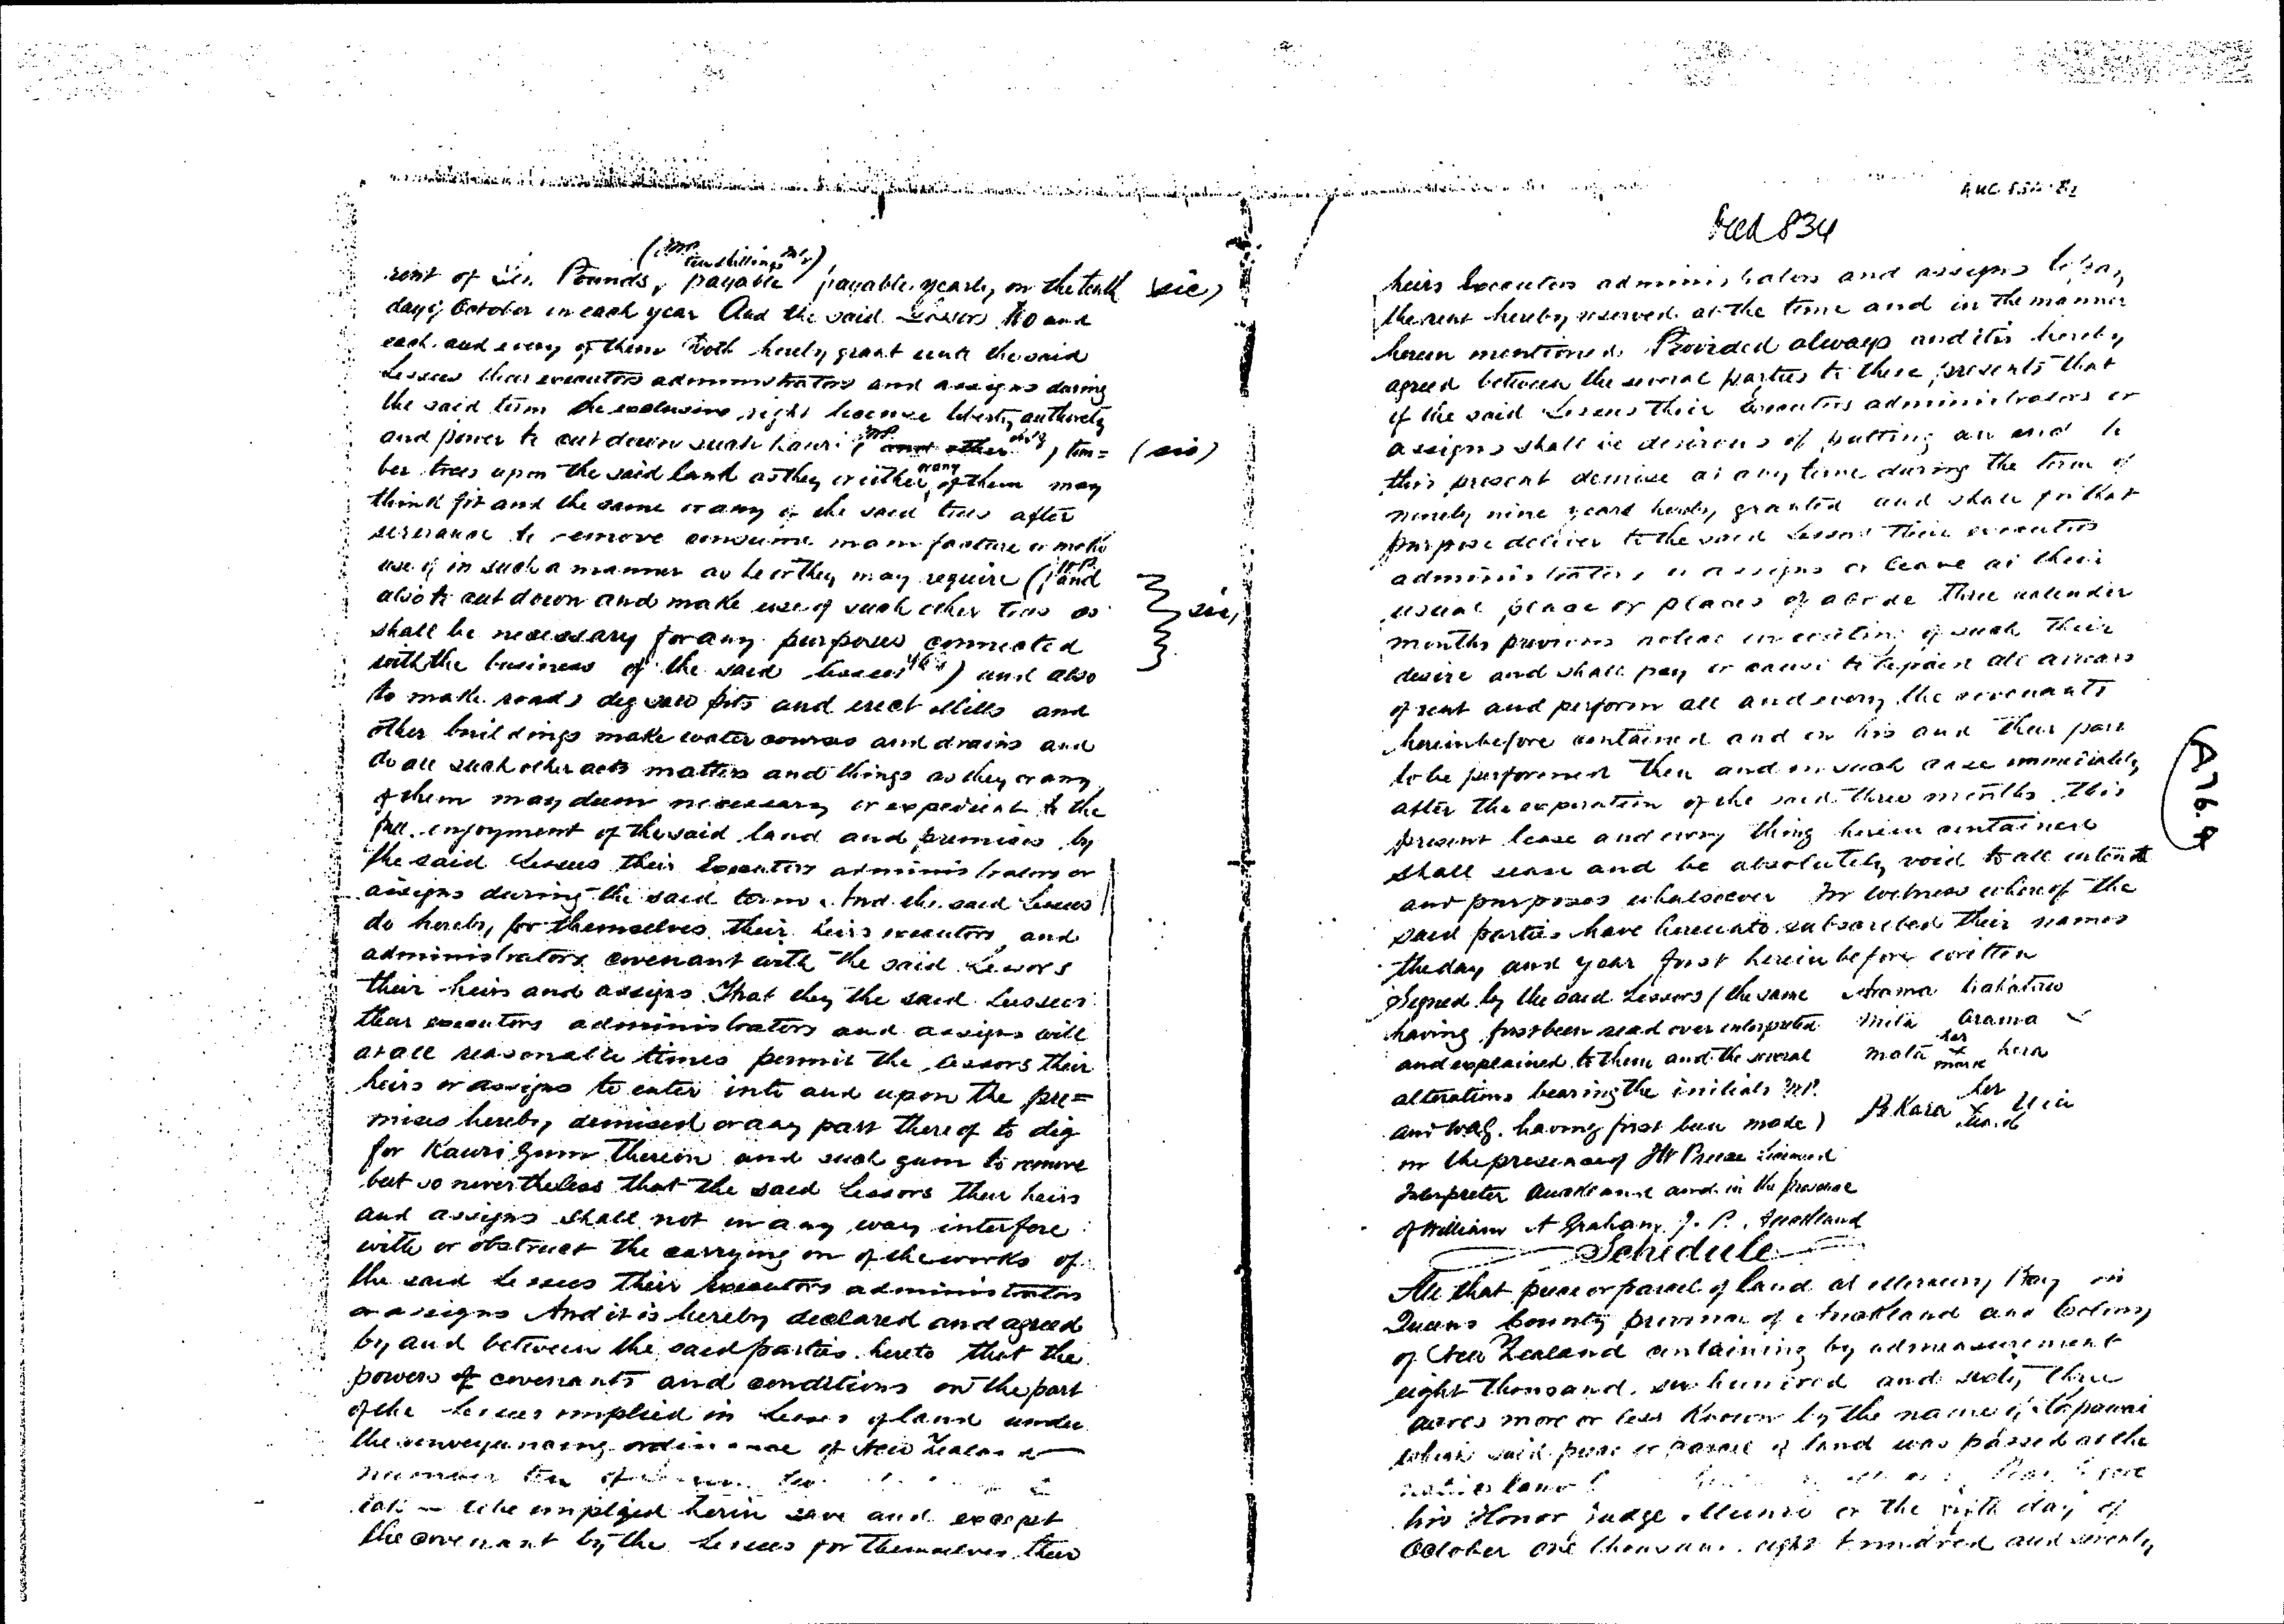 (ten shillings)
rent of Pounds, payable payable yearly, on the tenth (sic)
day of October in each year And the said Lessors do and
each and every of them doth hereby grant unto the said
Lessees their executors administrators and assigns during
the said term the exclusive right license liberty authority
and power to cut down such kauri (and other) tim= (sic)
ber trees upon the said land as they or either or any of them may
think fit and the same or any of the said trees after
severance to remove consume manufacture or make
use of in such a manner as he or they may require (and
also to cut down and make use of such other trees as sic,
shall be necessary for any purposes connected
with the business of the said lessees) and also
to make roads dig saw pits and erect Mills and
other buildings make water courses and drains and
do all such other acts matters and things as they or any
of them may deem necessary or expedient to the
full enjoyment of the said land and premises by
the said Lessees their Executors administrators or
assigns during the said term And the said Lessees
do hereby for themselves their heirs executors and
administrators covenant with the said Lessors
their heirs and assigns That they the said Lessees
their executors administrators and assigns will
at all reasonable times permit the lessors their
heirs or assigns to enter into and upon the pre=
mises hereby demised or any part thereof to dig
for Kauri gum therein and such gum to remove
but so nevertheless that the said Lessors their heirs
and assigns shall not in any way interfere
with or obstruct the carrying on of the works of
the said Lessees their Executors administrators
or assigns And it is hereby declared and agreed
by and between the said parties hereto that the
powers of covenants and conditions on the part
of the Lessees implied in Leases of land under
the conveyancing ordinance of New Zealand
number ten of
to be implied herin save and except
the covenant by the Lessees for themselves their
Deed 834
heirs Executors administrators and assigns to pay
the rent hereby reserved at the time and in the manner
herein mentioned Provided always and it is hereby
agreed between the several parties to these presents that
if the said Lessees their Executors administrators or
assigns shall be desirous of putting an end to
this present demise at any time during the term of
ninety nine years hereby granted and shall for that
purpose deliver to the said Lessors their executors
administrators or assigns or leave at their
usual place or places of abode three calender
months previous notice in writing of such their
desire and shall pay or cause to be paid all arrears
of rent and perform all and every the covenants
hereinbefore contained and on his and their part
to be performed then and in such case immediately
after the expiration of the said three months this
present lease and every thing herein contained
shall cease and be absolutely void to all intents
and purposes whatsoever In witness whereof the
said parties have hereunto subscribed their names
the day and year first herein before written
Signed by the said Lessors (the same
having first been read over interpreted Mita Arama
and explained to them and the several Mata her x mark hera
alterations bearing the initials M.P.
and WAG. having first been made)
in the presence of Preece Licensed
Interpreter Auckland and in the presence
of William A Graham J. P. Auckland
Schedule
All that piece or parcel of land at Mercury Bay in
Queens County province of Auckland and Colony
of New Zealand containing by admeasurement
eight thousand six hundred and sixty three
acres more or less Known by the name of
which said piece or parcel of land was passed at the
native land
his Honor Judge Munro on the day of
October one thousand eight hundred and seventy